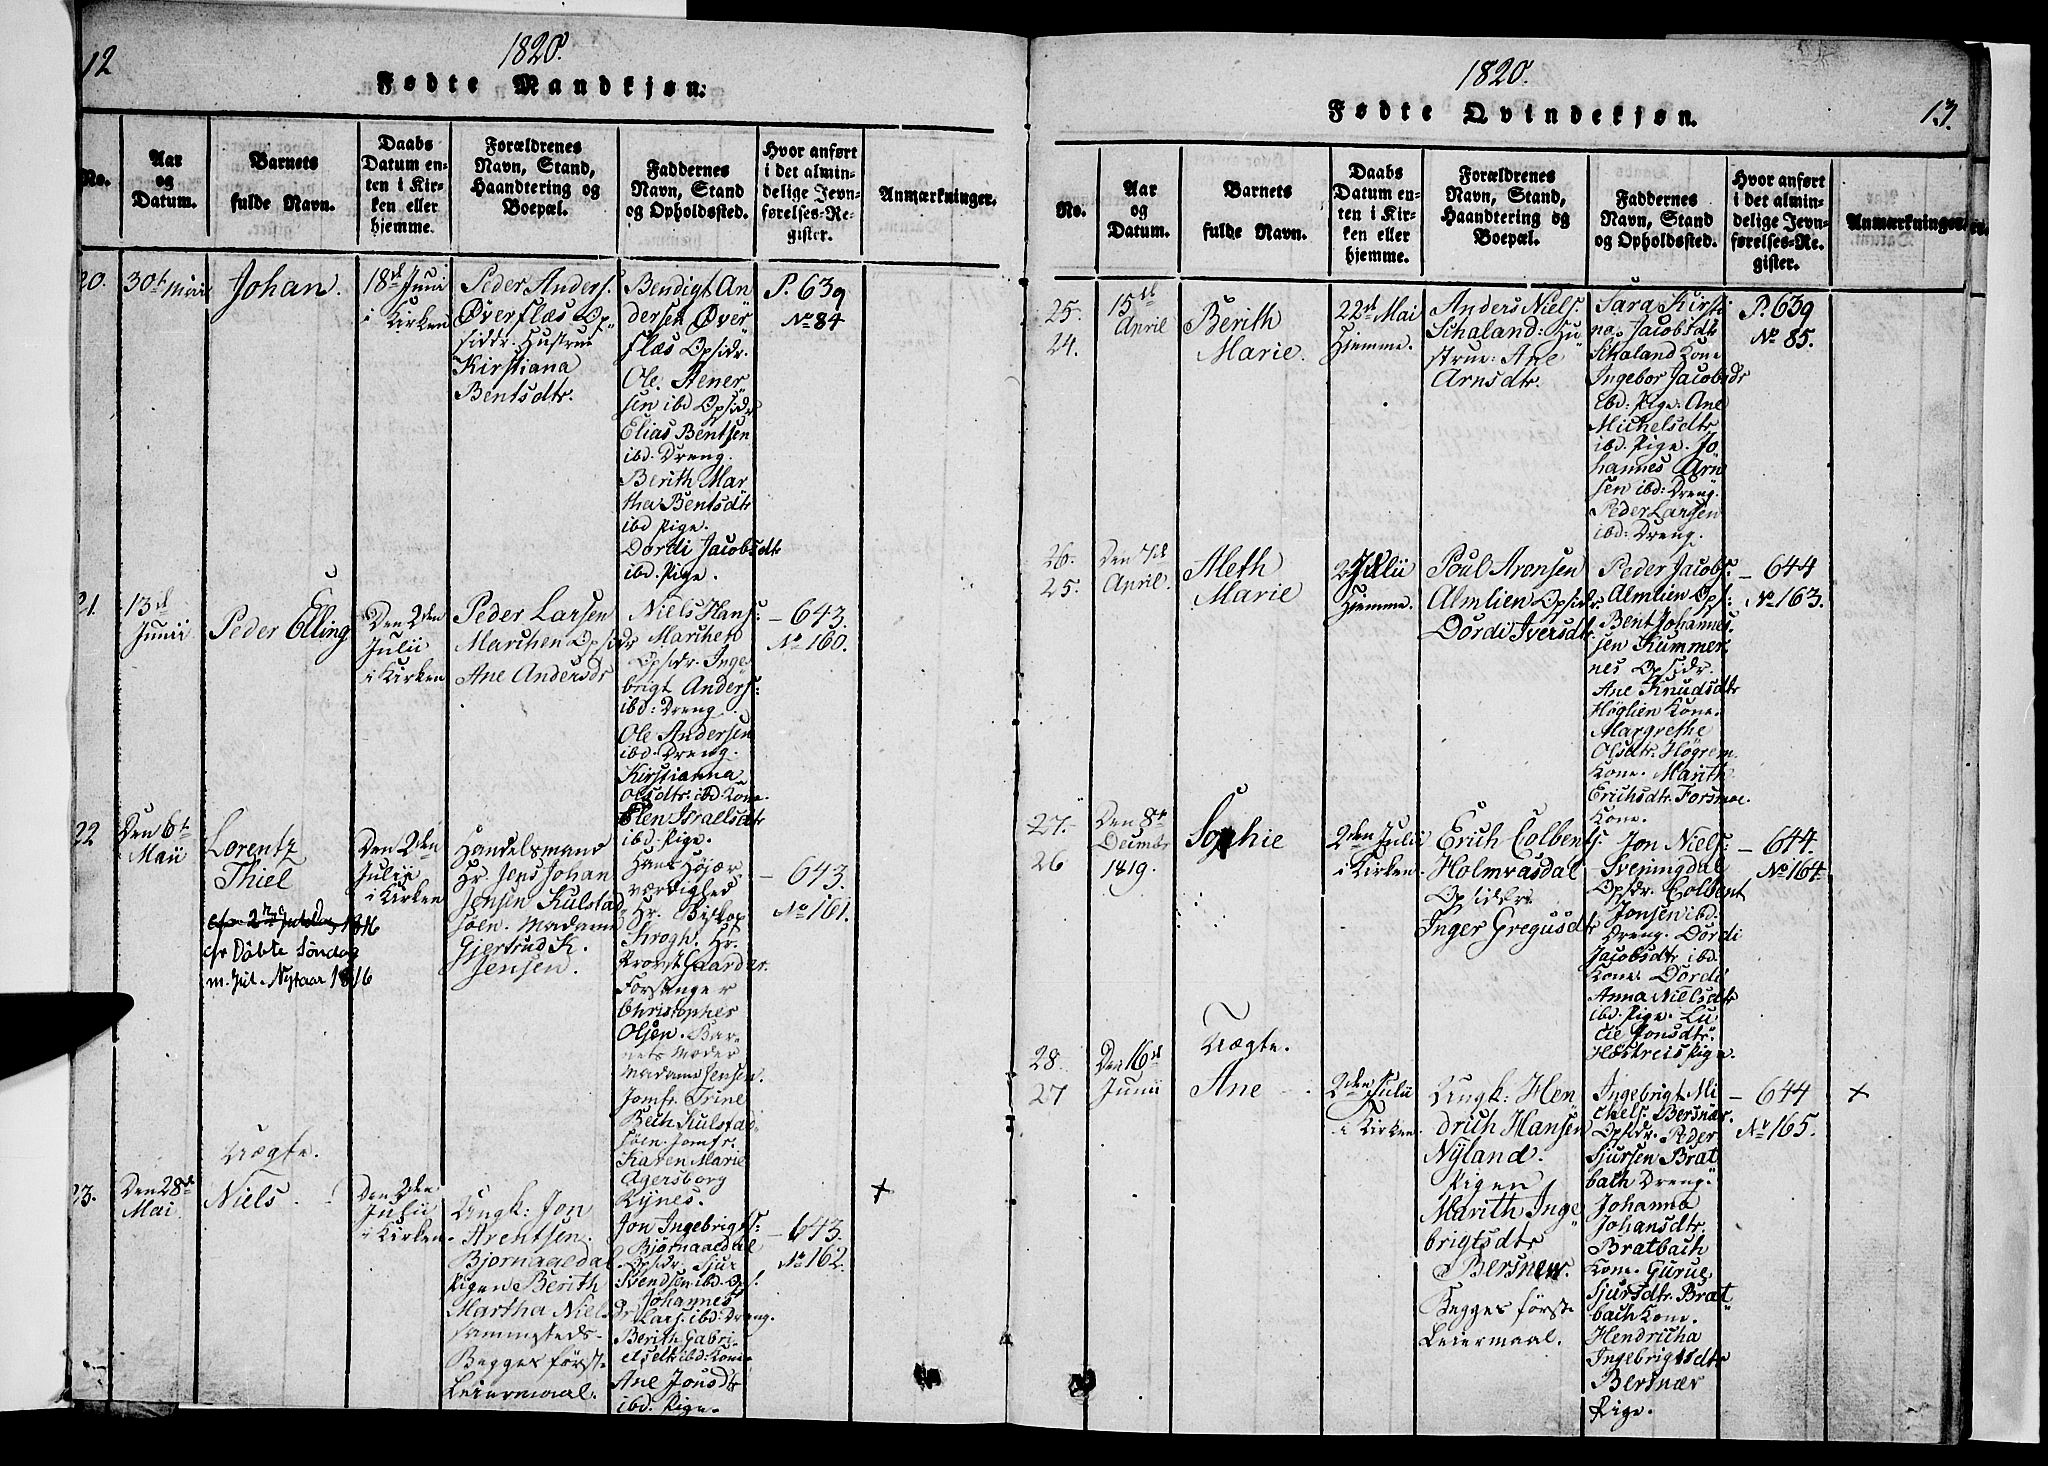 12
1820.
Fødte Mandkjøn.
No.
Aar
og
Datum.
Barnets
fulde Navn.
Daabs
Datum en-
ten i Kir-
ken eller
hjemme.
Forældrenes
Navn, Stand,
Haandtering og
Boepæl.
Faddernes
Navn, Stand
og Opholdssted.
Hvor anført
i det almin-
delige Jevn-
førelses-Re-
gister.
Anmærkninger.
20.
30te Maii
Johan.
18de Juni
i Kirken
Peder Anders.
Øverflæs Op
siddr. Hustrue
Kirstiana
Bentsdtr.
Bendigt An
dersen Øver
flæs Opsidr.
Ole Stener
sen ibd Opsidr
Elias Bentsen
ibd. Dreng.
Berith Mar
tha Bentsdtr
ibd Pige.
Dordi Jacobsdtr
ibd. Pige.
P. 639
No 84
21.
13de
Junii
Peder Elling
Den 2den
Julii
i Kirken
Peder Larsen
Marchen Opsidr
Ane Andersdr
Niels Hans:
Marchen
Opsidr. Inge
brigt Anders:
ibd: Dreng
Ole Andersen
ibd. Dreng.
Kirstianna
Olsdtr. ibd Kone.
Elen Israelsdtr
ibd. Pige.
- 643.
No 160.
22
Den 6te
Maii
Lorentz
Thiel
1816
cfr Döbte Söndag
m. Jul. Nytaar 1816
Den 2den
Julii
i Kirken
Handelsmand
Hr Jens Johan
Jensen Kulstad
søen. Madame
Gjertrud K.
Jensen.
Hans Højær
værdighed
Hr. Biskop
Krogh. Hr.
Provst Gaarder.
Forsanger
Christopher
Olsen. Bar-
nets Moder
Madame Jensen.
Jomfr. Trine
Bech Kulstad
søen. Jomfr.
Karen Marie
Agersborg
Rynes.
- 643.
No 161.
23.
Den 28de
Mai
Uægte.
Niels
Den 2den
Julii
i Kirken
Ungk: Jon
Arentsen.
Bjornaaedal
Pigen Berith
Martha Niels Dr
sammesteds.
Begges første
Leiermaal.
Jon Ingebrigts:
Bjørnaaedal
Opsidr. Sjur
Svendsen ibd. Ops.
Johannes
Lars. ibd Dreng.
Berith Gabri-
elsdtr ibd: Kone
Ane Jonsdtr
ibd. Pige.
- 643.
No 162.
+
1820.
Fødte Qvindekjøn.
13.
No.
Aar
og
Datum.
Barnets
fulde Navn.
Daabs
Datum en-
ten i Kir-
ken eller
hjemme.
Forældrenes
Navn, Stand,
Haandtering og
Boepæl.
Faddernes
Navn, Stand
og Opholdssted.
Hvor anført
i det almin-
delige Jevn-
førelses-Re-
gister.
Anmærkninger.
25.
24.
15de
April
Berith
Marie.
22de Mai
Hjemme.
Anders Niels.
Schaland: Hu
strue: Ane
Arnsdtr.
Sara Kirsti
na Jacobsdtr
Schaland Kone
Ingebor Jacobsdr
ibd: Pige. Ane
Michelsdtr
ibd. Pige. Jo
hannes Arn
sen ibd: Dreng.
Peder Larsen
ibd: Dreng.
P. 639
No 85.
26.
25.
Den 7de
April.
Aleth
Marie
2 Julii
Hjemme.
Poul Aronsen
Almlien Opsidr
Dordi Iversdtr.
Peder Jacobs:
Almlien Ops:
Bent Johannes
sen Kummer
nes Opsidr.
Ane Knudsdtr
Høglien Kone.
Margrethe
Olsdtr. Høgrem
Kone. Marith
Erichsdtr. Forsmoe
Kone.
- 644
No 163.
27.
26
Den 8de
Decembr
1819.
Sophie
2den Julii
i Kirken
Erich Colbents.
Holmvasdal
Opsidder
Inger Gregusdtr
Jon Niels:
Sveningdal
Opsidr. Colbent
Jonsen ibd.
Dreng. Dordi
Jacobsdtr ibd.
Kone. Dordi
Anna Nielsdtr
ibd. Pige. Lu
cie Jonsdtr.
Høstreis Pige.
- 644.
No 164.
28.
27
Den 16de
Junii
Uægte.
Ane
2den Julii
i Kirken.
Ungk: Hen
drich Hansen
Nyland.
Pigen
Marith Inge
brigtsdtr
Bersnew.
Begges første
Leiermaal.
Ingebrigt Mi
chels. Bersnær.
Opsidr. Peder
Sjursen Brat
bach Dreng.
Johanna
Johansdtr.
Bratbach
Kone. Gurue
Sjursdtr. Brat
bach Kone.
Hendricha
Ingebrigtsdtr
Bersnær
Pige.
- 644
No 165.
+